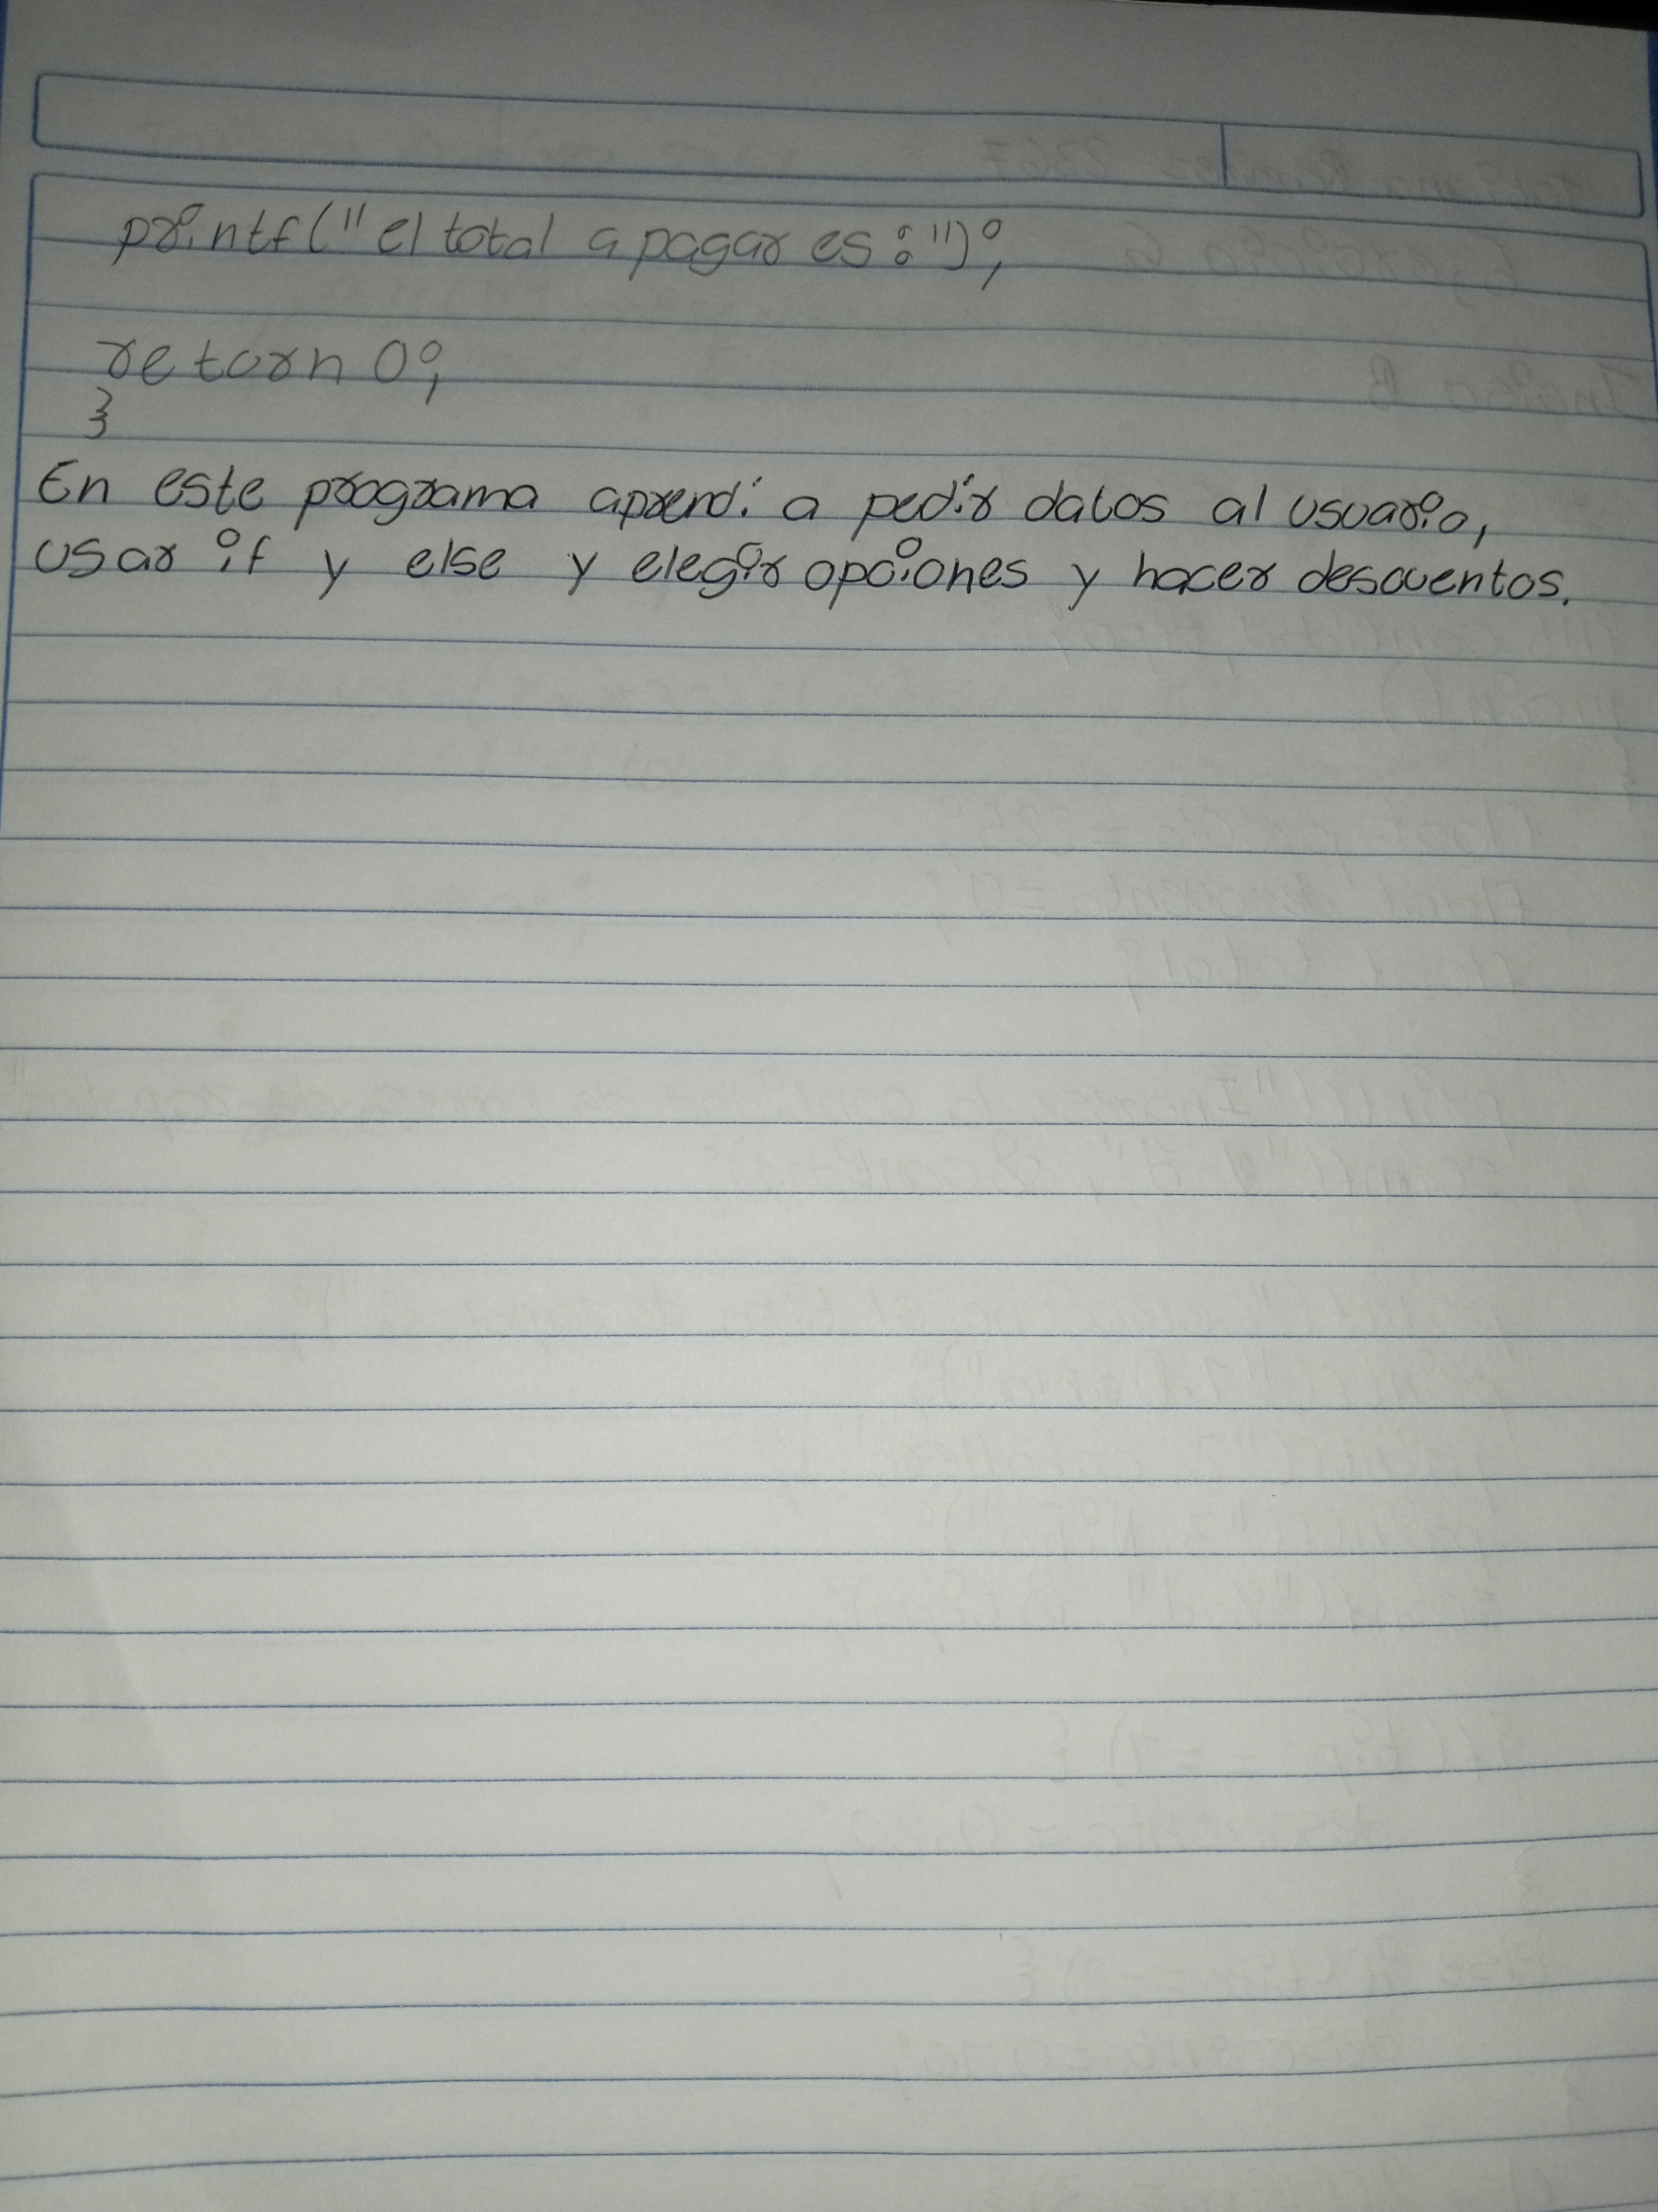 printf("el total a pagar es:");
return 0;
}
En este programa aprendí a pedir datos al usuario,
usar if y else y elegir opciones y hacer descuentos.